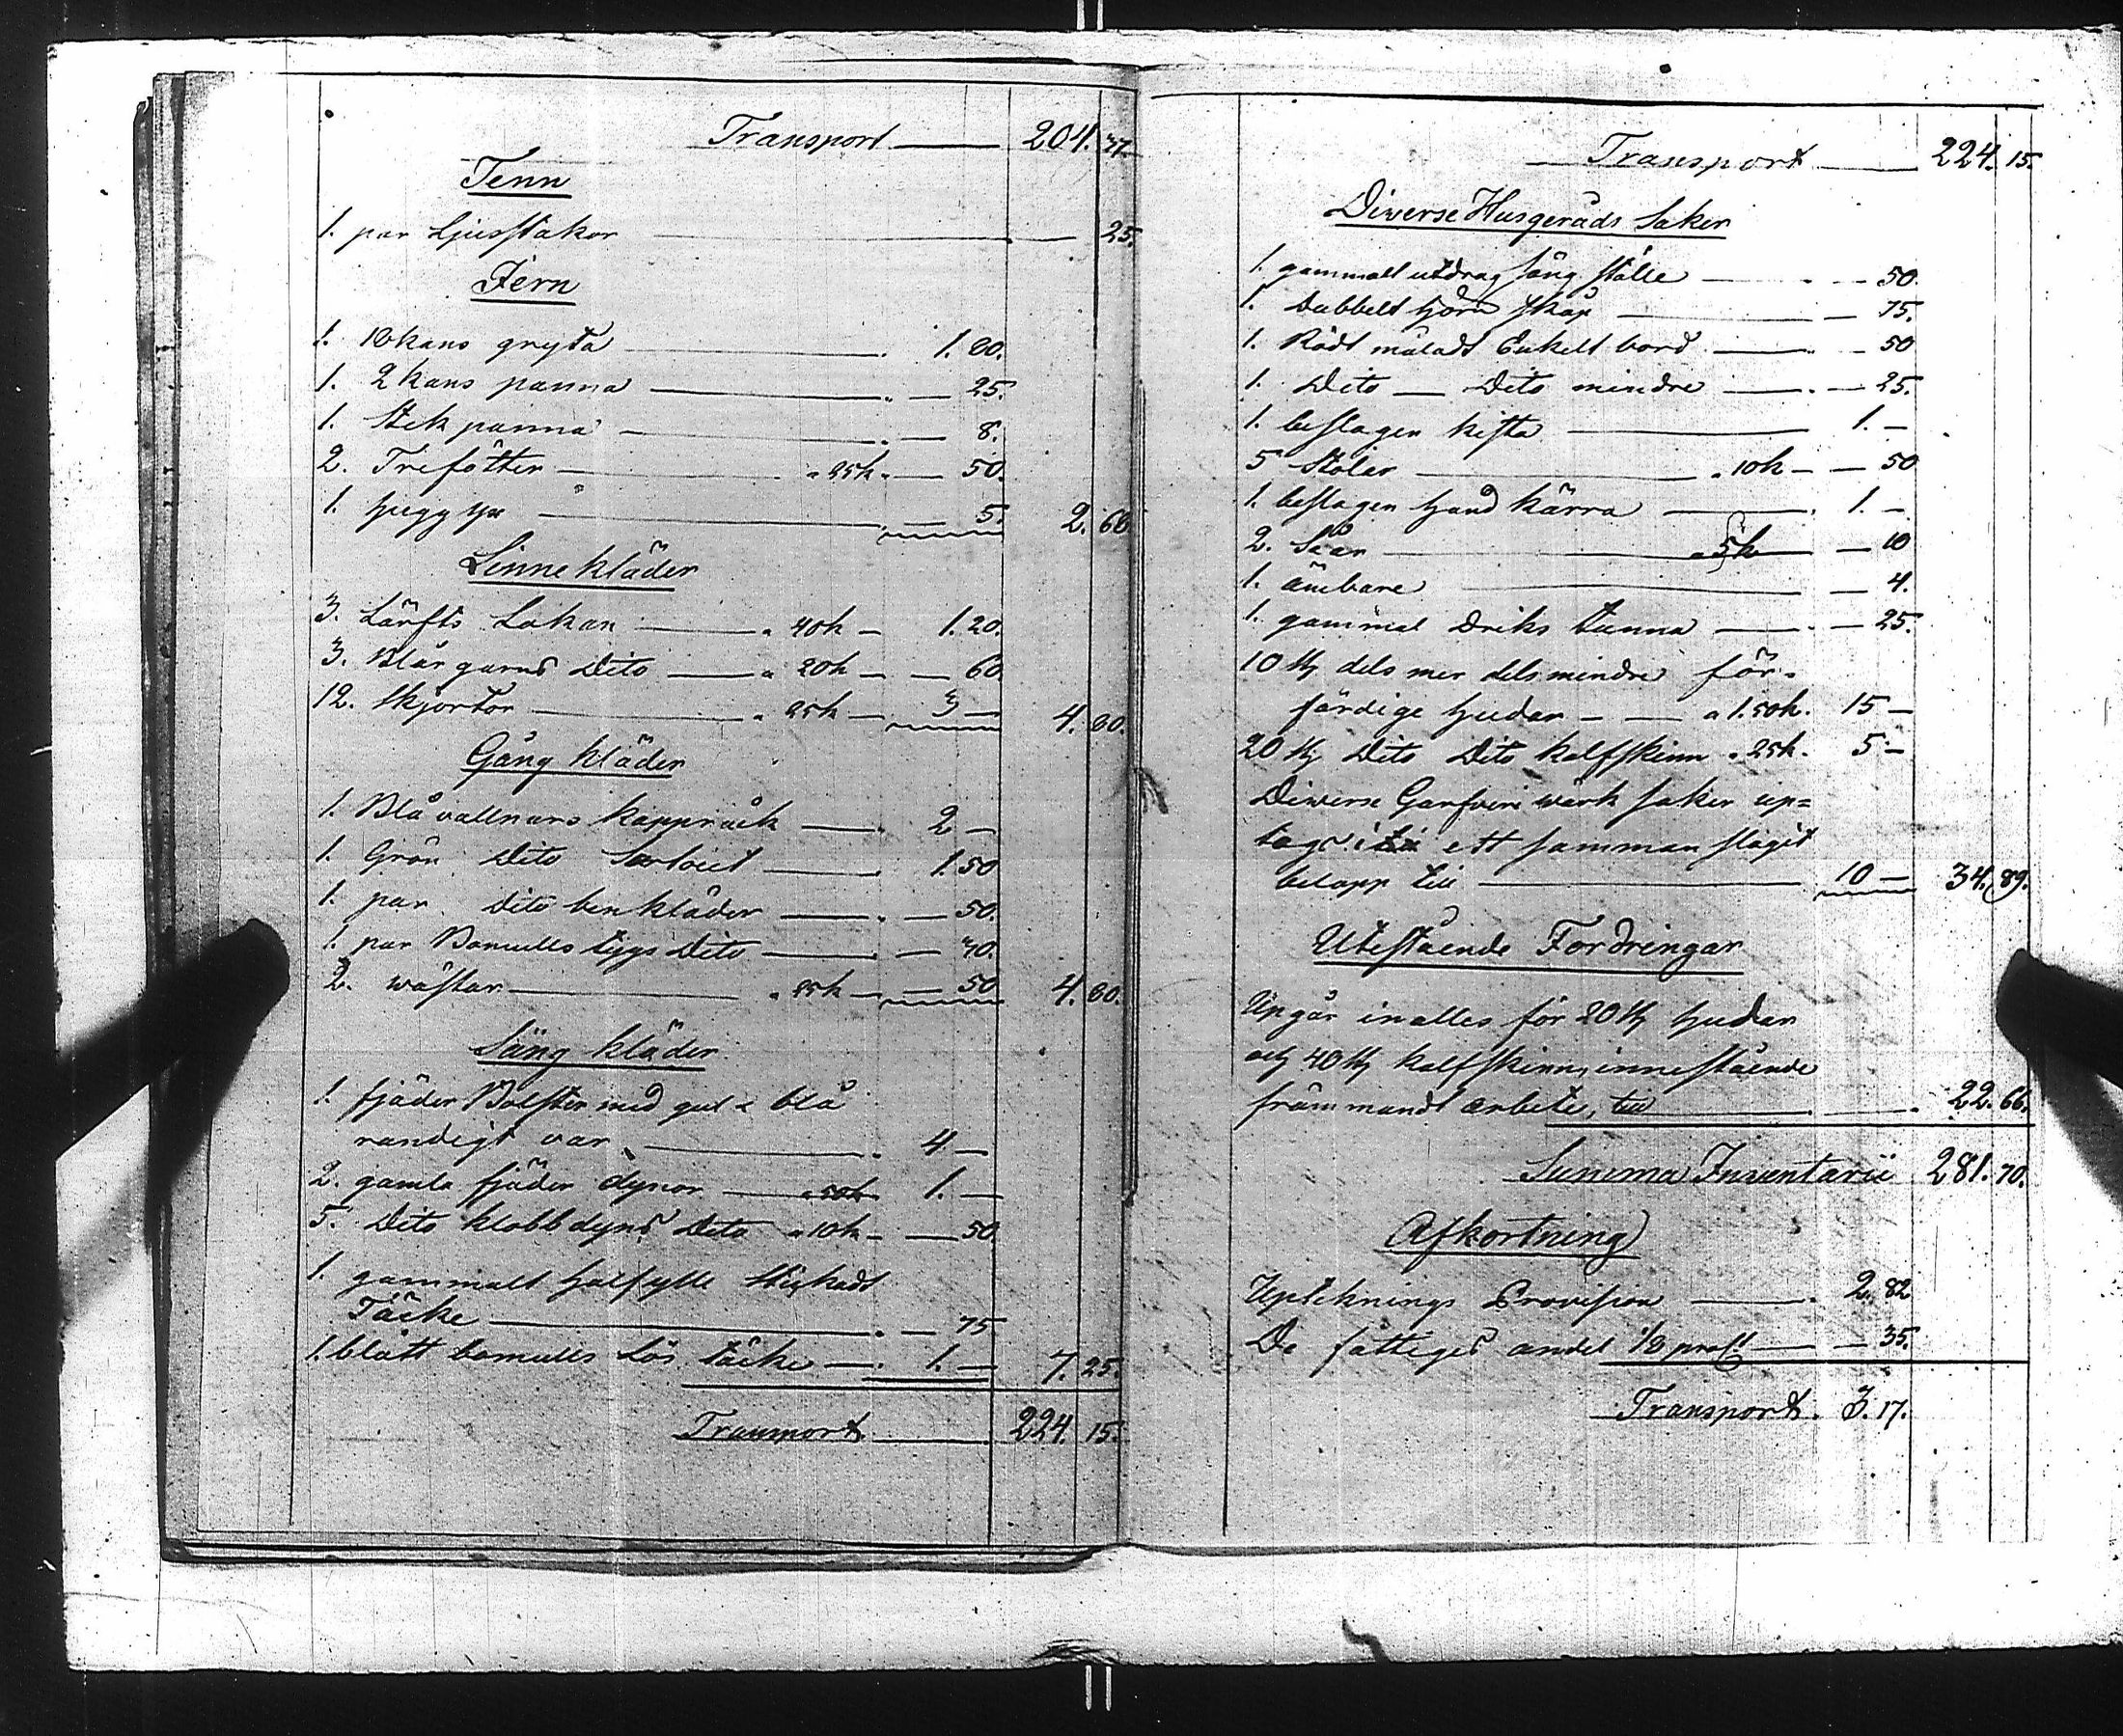 Transport 204. 37.
Tenn
1. par Ljusstakar 25.
Jern
1. 18 kans gryta 1. 80.
1. 2 kans panna 25.
1. Stek panna 8.
2. Trefötter a 25k 50.
1. hugg yx 5. 2. 68
Linne kläder
3. Lärfts Lakan a 40k 1. 20.
3. Blår garns Dito a 20k 60
12. Skjortor a 25k 3 — 4. 80.
Gång kläder
1. Blå vallmars kappråck 2 —
1. Grön Dito Sortout 1. 50
1. par dito benkläder 50.
1. par Bomulls tygs Dito 30.
2. wästar a 25k 50 4. 80.
Säng kläder
1. fjäder Bolster med gul & blå
randigt var 4 —
2. gamla fjäder dynor a 50k 1. —
5. Dito klabb dyns Dito a 10k 50
1. gammalt halfylle Stickadt
Täcke 75
1. blått bomulls Lös täcke 1. — 7. 25.
Transport 224. 15.
Transport 224. 15.
Diverse Husgeråds Saker
1. gammalt utdrag säng ställe 50.
1. Dubbelt hörn skåp 75.
1. Rödt måladt Enkelt bord 50
1. Dito — Dito mindre 25.
1. beslagen kista 1. —
5 Stolar a 10k 50
1. beslagen hand kärra 1. —
2. Såar a 5k 10
1. ämbare 4.
1. gammal Driks tunna 25.
10 st dels mer dels mindre för-
färdige hudar a 1. 50k. 15 —
20 st Dito Dito kalfskinn a 25k. 5 —
Diverse Garfveri wärk saker up=
tags i ett samman slagit
belopp till 10 — 34. 89.
Utestående Fordringar
Upgår inalles för 20 st hudar
och 40 st kalfskinn, innestående
främmandt arbete, till 22. 66.
Summa Inventarii 281. 70.
Afkortning
Upteknings Provision 2. 82
De fattiges andel 1/8 pro Ct 35.
Transport. 3. 17.